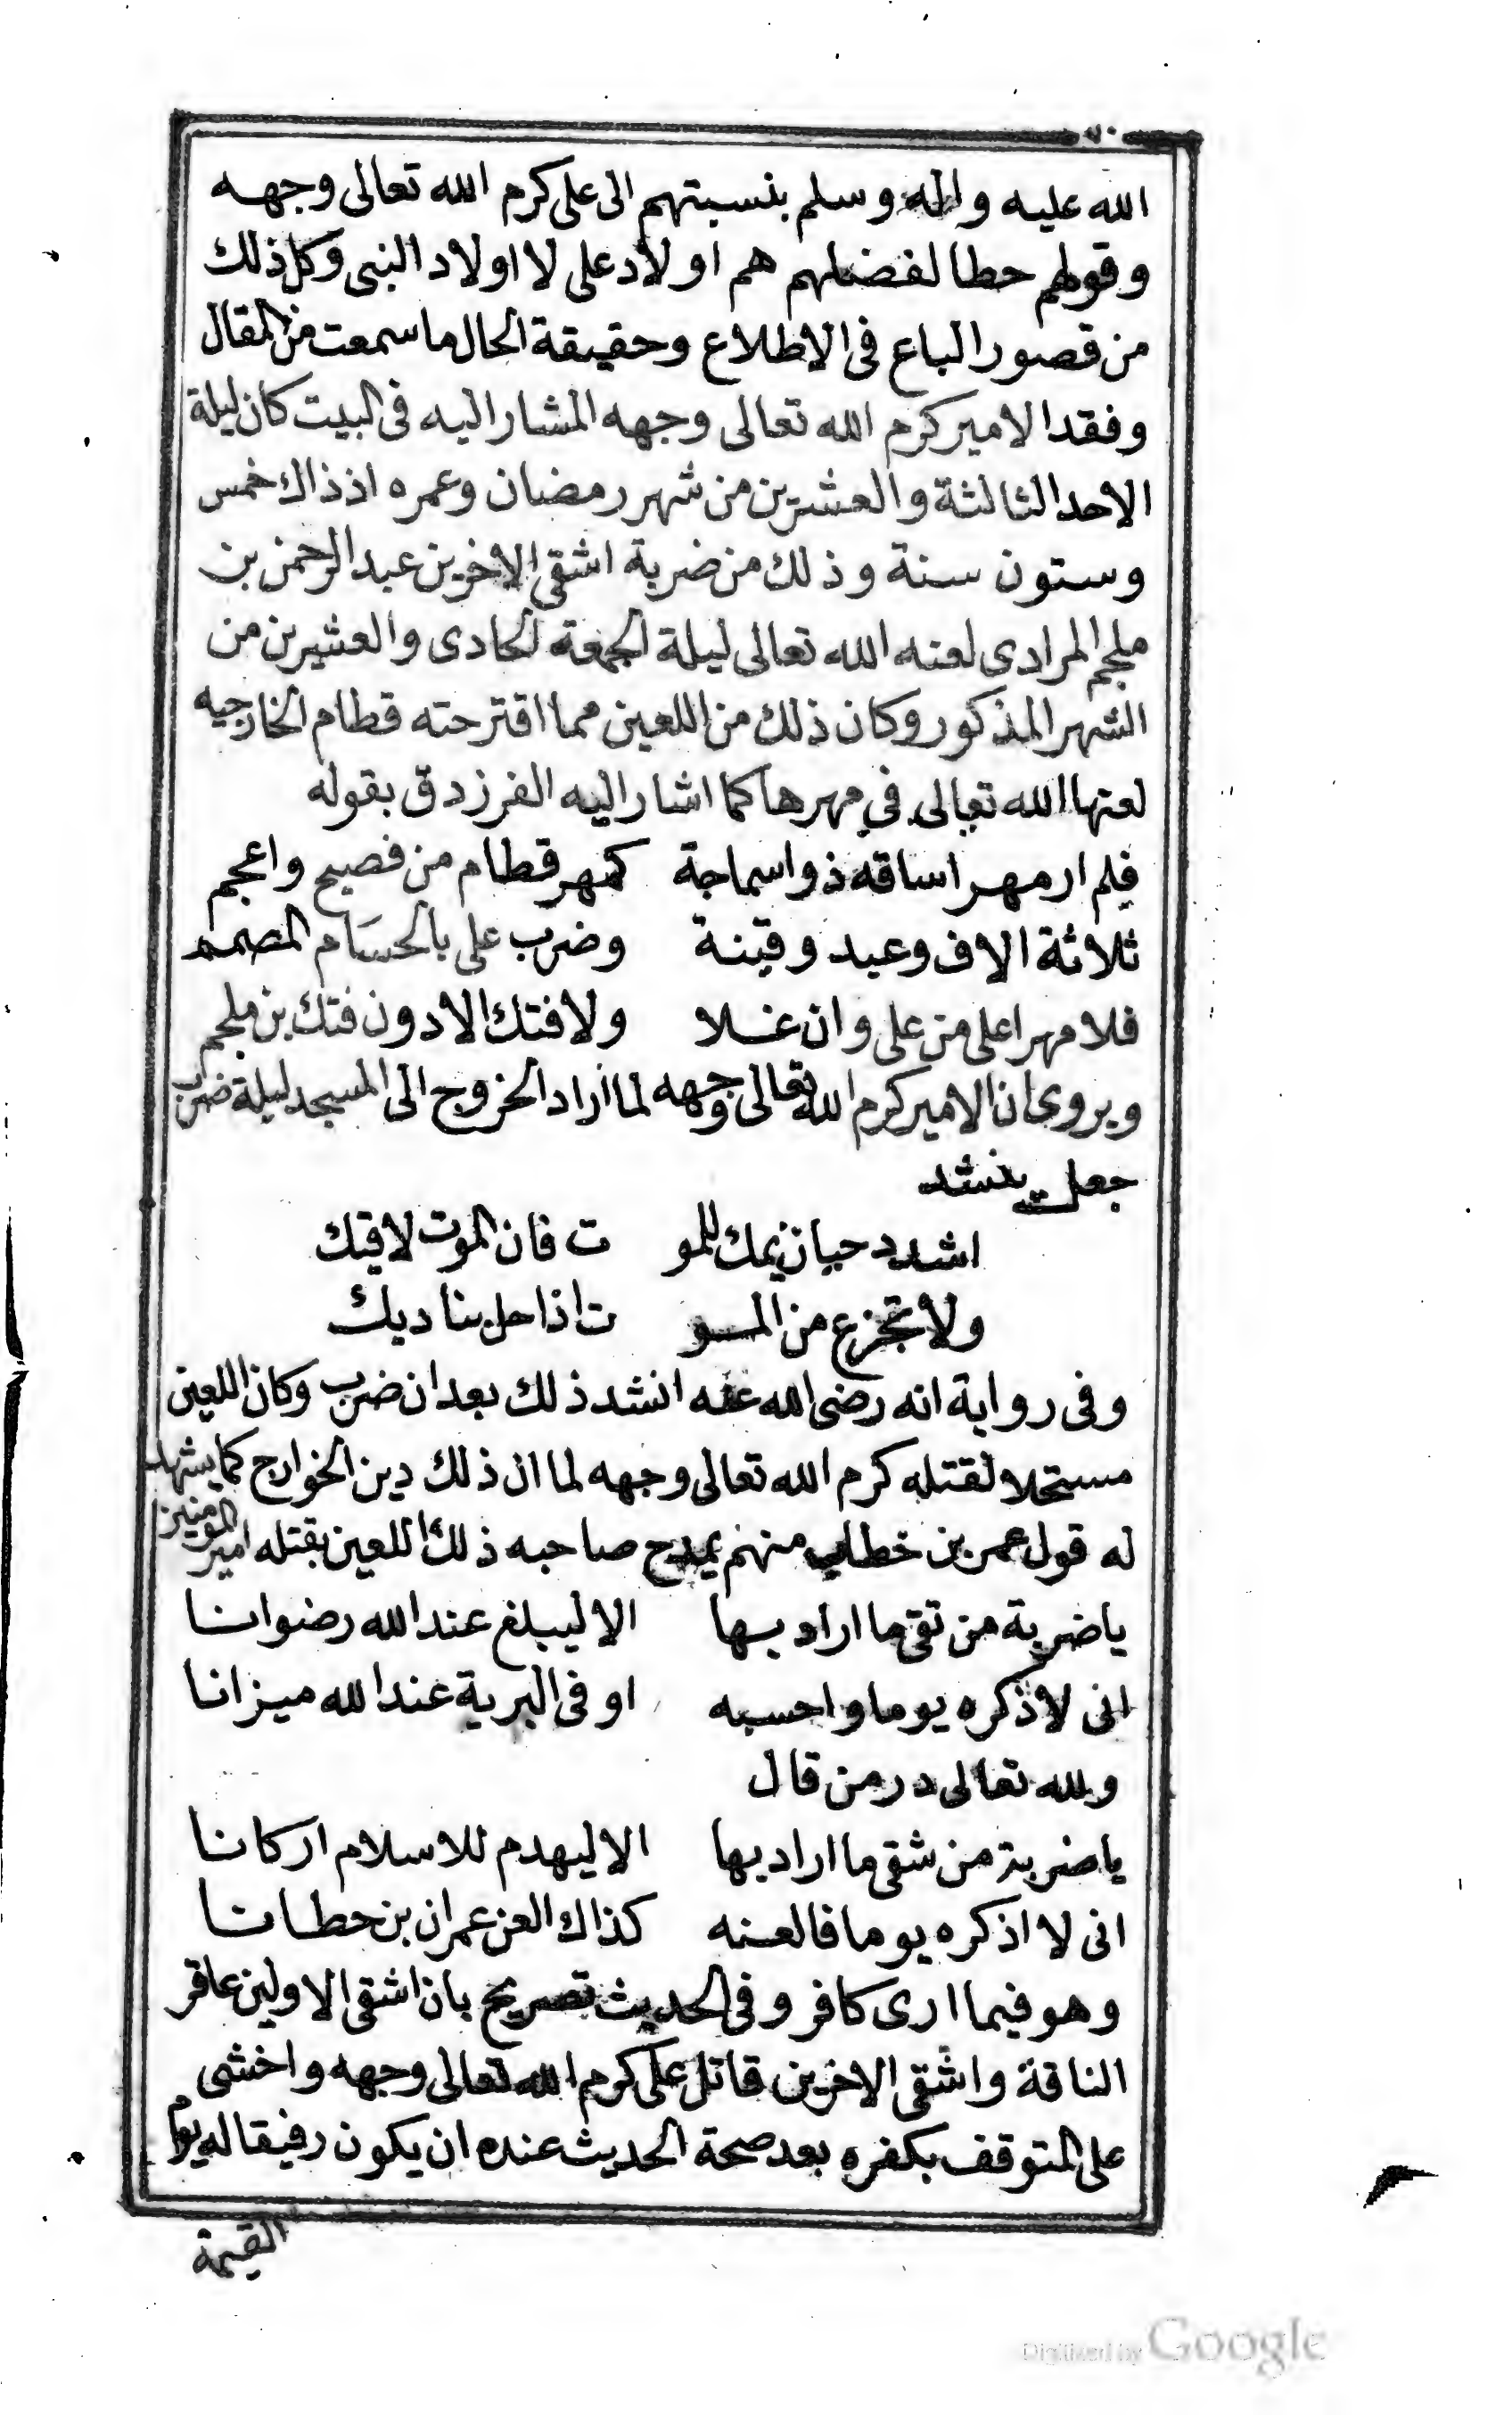 ٧٠
الله عليه واله وسلم بنسبتهم الى على كرم الله تعالى وجهه
وقولهم حطا لفضلهم هم اولاد على لا اولاد النبى وكل ذلك
من قصور الباع فى الاطلاع وحقيقة الحال ما سمعت من المقال
وفقد الامير كرم الله تعالى وجهه المشار اليه فى البيت كان ليلة
الاحد الثالثة والعشرين من شهر رمضان وعمره اذ ذاك خمس
وستون سنة وذلك من ضربة اشقى الاخرين عبد الرحمن بن
ملجم المرادى لعنه الله تعالى ليلة الجمعة الحادى والعشرين من
الشهر المذكور وكان ذلك من اللعين مما اقترحته قطام الخارجيه
لعنها الله تعالى فى مهرها كما اشار اليه الفرزدق بقوله
فلم ار مهرا ساقه ذوا سماجة كمهر قطام من فصيح واعجم
ثلاثة الاف وعبد وقينة وضرب على بالحسام المصمم
فلا مهر اعلى من على وان غلا ولا فتك الا دون فتك بن ملجم
ويروى ان الامير كرم الله تعالى وجهه لما أراد الخروج الى المسجد ليلة ضرب
جعل ينشد
اشدد حيازيمك للمو ت فان الموت لاقيك
ولا تجزع من المو ت اذا حل بناديك
وفى رواية انه رضى الله عنه انشد ذلك بعد ان ضرب وكان اللعين
مستحلا لقتله كرم الله تعالى وجهه لما ان ذلك دين الخوارج كما يشهد
له قول عمر بن خطاب منهم يمدح صاحبه ذلك اللعين بقتله امير المومنين
يا ضربة من تقى ما اراد بها الا ليبلغ عند الله رضوانا
انى لاذكره يوما واحسبه اوفى البرية عند الله ميزانا
ولله تعالى در من قال
يا ضربة من شقى ما اراد بها الا ليهدم للاسلام اركانا
انى لا اذكره يوما فالعنه كذاك العن عمران بن حطانا
وهو فيما ارى كافر وفى الحديث تصريح بان اشقى الاولين عاقر
الناقة واشقى الاخرين قاتل على كرم الله تعالى وجهه واخشى
على المتوقف بكفره بعد صحة الحديث عنده ان يكون رفيقا له يوم
القيمة
Digitized by Google